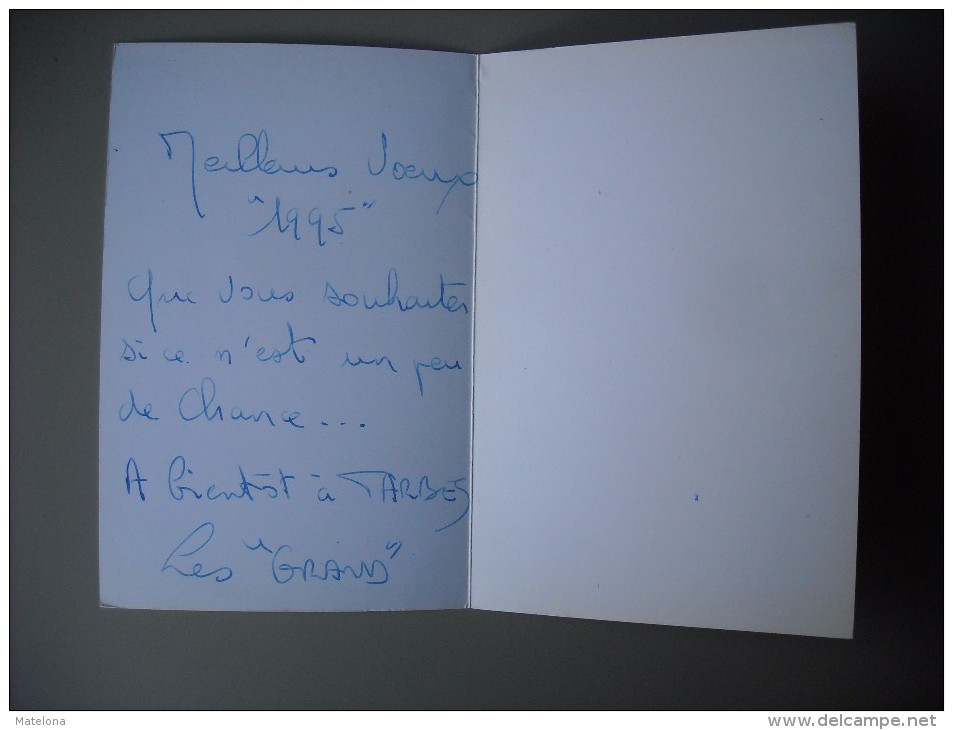 Meilleurs Voeux
"1995"
Que vous souhaiter
si ce n'est un peu
de Chance...
A bientôt à TARBES
Les "GRAND"
Matelona
www.delcampe.net